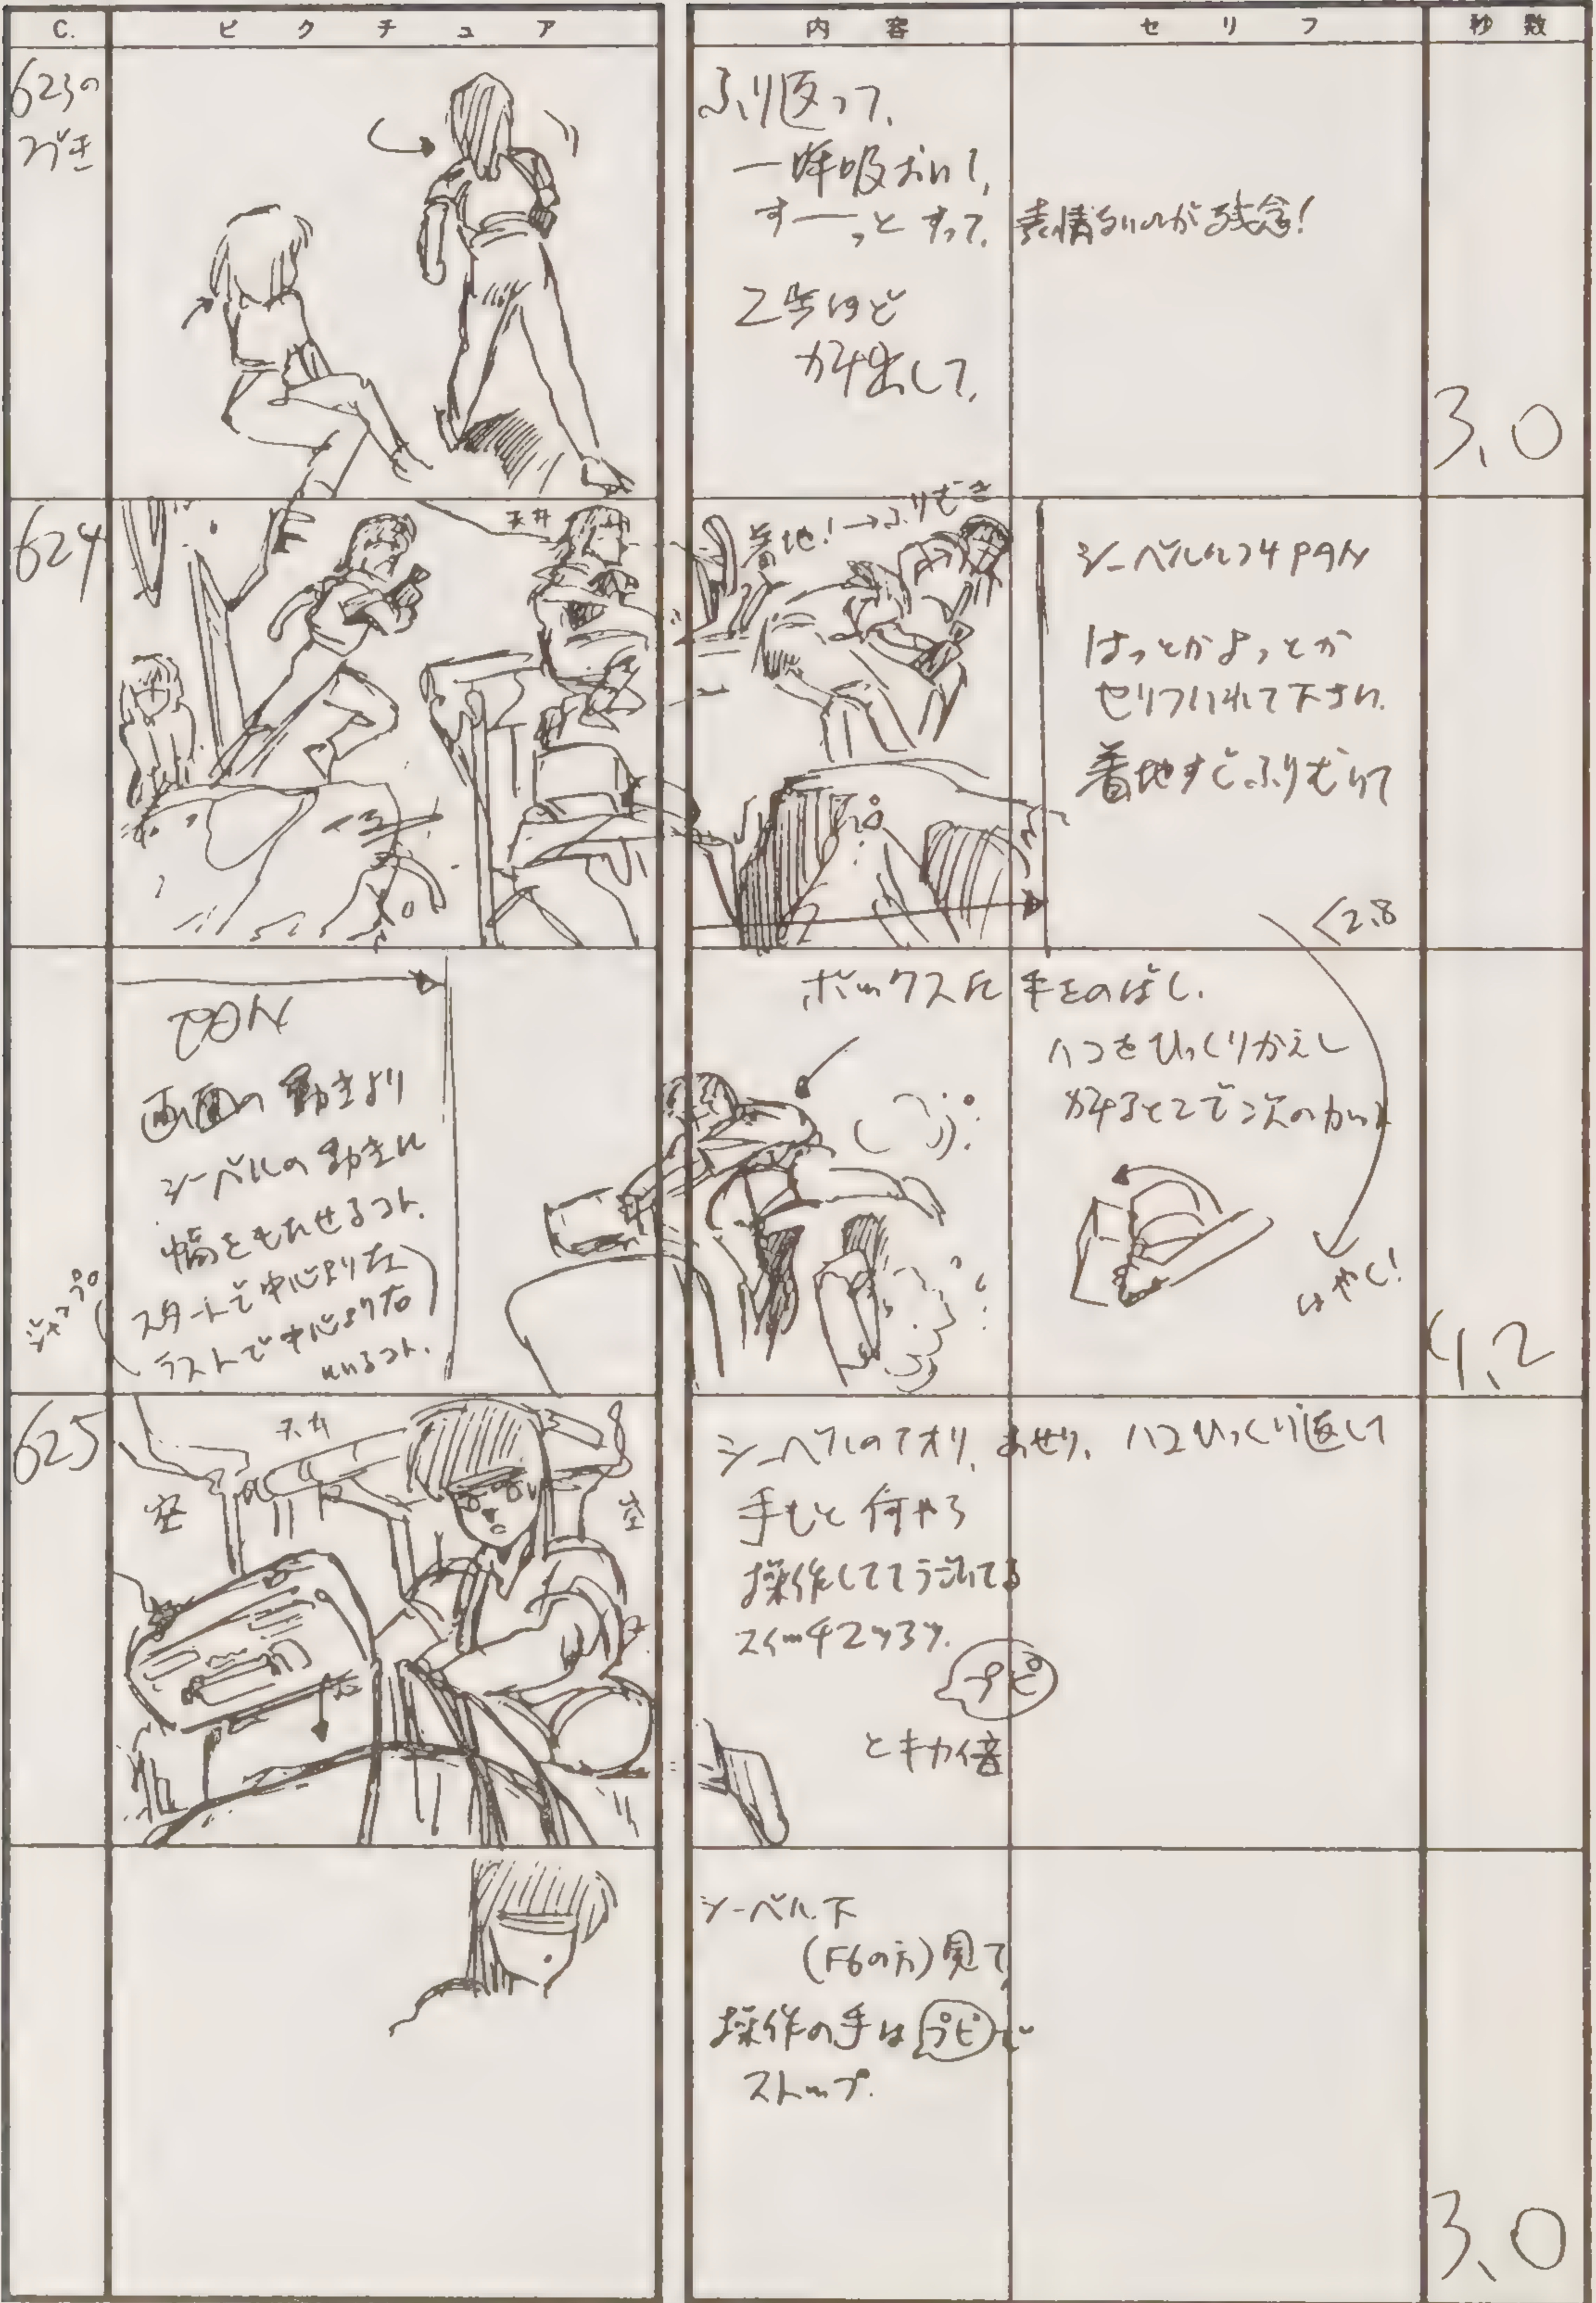 C.
ピクチュア
内容
セリフ
秒数
623の
つづき
ふり返って、
一呼吸おいて、
すーっとすって、
表情ないのが残念!
2歩ほど
かけ出して、
3.0
624
天井
着地!→ふりむき
シーベルにつけPAN
はっとかよっとか
セリフいれて下さい。
着地すぐふりむいて
2.8
画面の動きより
シーベルの動きに
幅をもたせるコト。
スタートで中心より左
ラストで中心より右
にいるコト。
ジャンプ
ボックスに手をのばし、
ハコをひっくりかえし
かけるとこで次のカット
はやく!
4.2
625
天井
空
空
シーベルのアオリ、あせり、ハコひっくり返して
手もと何やら
操作してて
スイッチ
プピ
とキカイ音
シーベル下
(F6の方)見て
操作の手はプピで
ストップ。
3.0